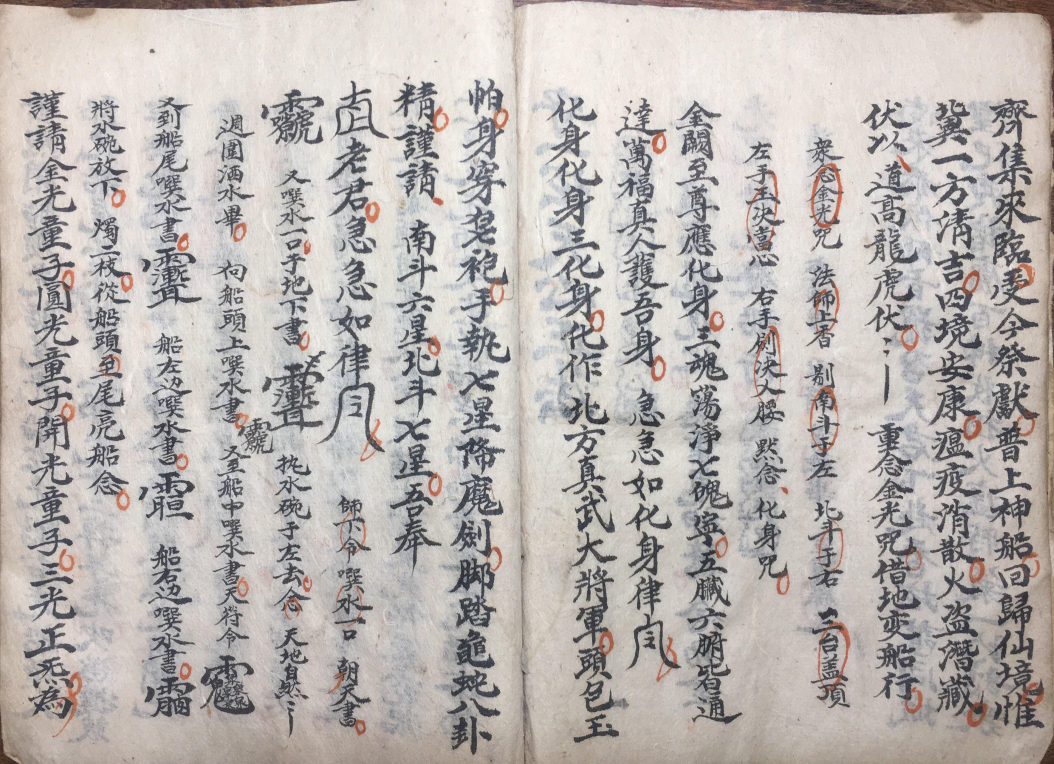 齊集來臨受今祭獻普上神船回歸仙境惟
冀一方清吉四境安康瘟疫消散火盜潛藏
伏以道高龍虎伏 重念金光咒借地变船行
衆念金光咒 法師上香 剔南斗于左 北斗于右 三台盖頂
左手玉決當心 右手劍決入腰 默念化身咒
金闕至尊應化身三魂蕩淨七魄寧五臟六腑皆通
達萬福真人護吾身 急急如化身律
化身化身三化身化作北方真武大將軍頭包玉
帕身穿皂袍手執七星降魔劍脚踏龜蛇八卦
精謹請 南斗六星北斗七星吾奉
老君急急如律 師下令噀水一口朝天書
又噀水一口于地下書 执水碗于左去念 天地自然
週圍洒水畢 向船頭上噀水書 又至船中噀水書天符令
又到船尾噀水書 船左边噀水書 船右边噀水書
將水碗放下 燭二枝從船頭至尾亮船念
謹請金光童子圓光童子開光童子三光正炁為